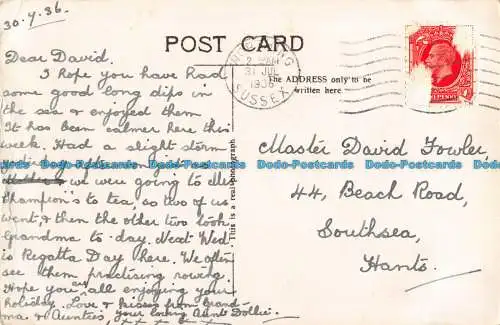 30.7.36.
POST CARD
Dear David.
I Hope you have had
some good long dips in
the sea & enjoyed them
It has been calmer here this
week. Had a slight storm
we were going to
to tea, so two of us
went, & then the other two took
Grandma to-day. Next Wed
is Regatta Day here. We often
see them practising rowing.
Hope you are all enjoying your
Holiday. Love & kisses from Grand-
ma & Aunties, your loving Aunt Dollie.
x x x x x
This is a real photograph
The ADDRESS only to be
written here.
WORTHING
2. AM
31 JUL
1936
SUSSEX
PENNY
Master David Fowler,
44, Beach Road,
Southsea,
Hants.
Dodo-Postcards Dodo-Postcards Dodo-Postcards Dodo-Postcards Dodo-Postcards